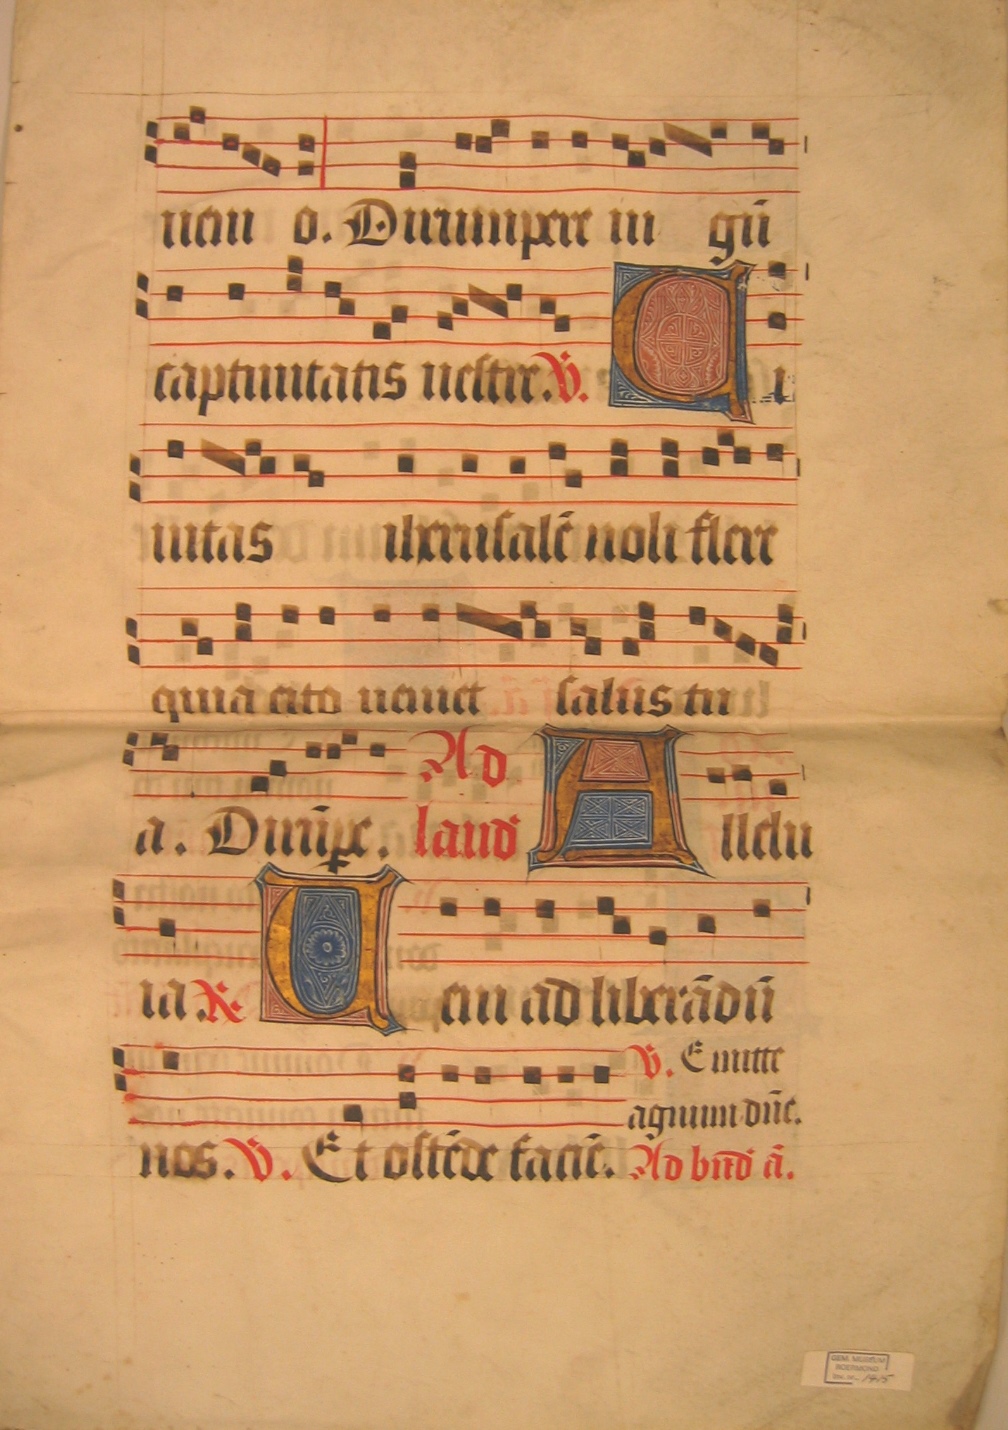 neu o. Dirumpere in gū
captiuitatis uestre. V. Ci
uitas iherusalē noli flere
quia cito ueniet salus tu
a. Dirūpe. Ad laud Allelu
ia R Ueni ad liberādū
nos. V. Et ostēde faciē. V. Emitte
agnum dñe.
Ad bñd ā.
GEM. MUSEUM
ROERMOND
Inv. nr. 1415